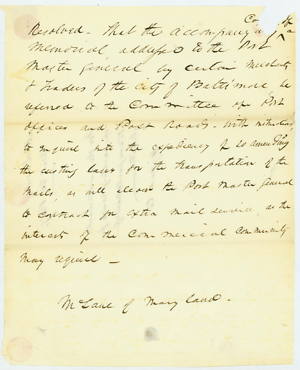 Resolved. That the accompanying
Copy of a
Memorial addressed to the Post
Master General by certain Merchants
& Traders of the city of Baltimore, be
referred to the Committee of Post
offices and Post Roads. With instructions
to inquire into the expediency of so amending
the existing laws for the transportation of the
Mails, as will allow the Post Master General
to contract for extra mail service, as the
interest of the Commercial Community
may require —
McLane of Maryland.